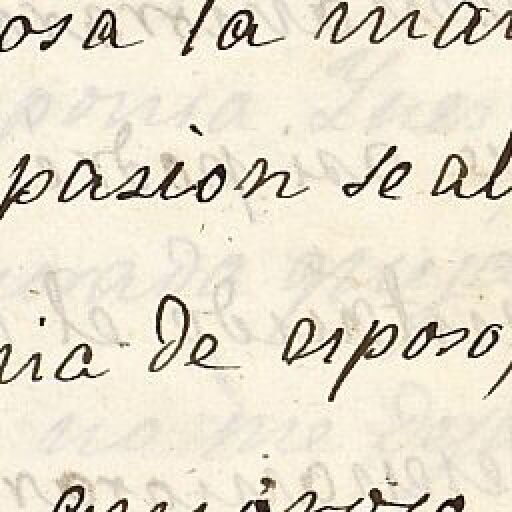 osa la man
pasiòn se al
nia de esposo,